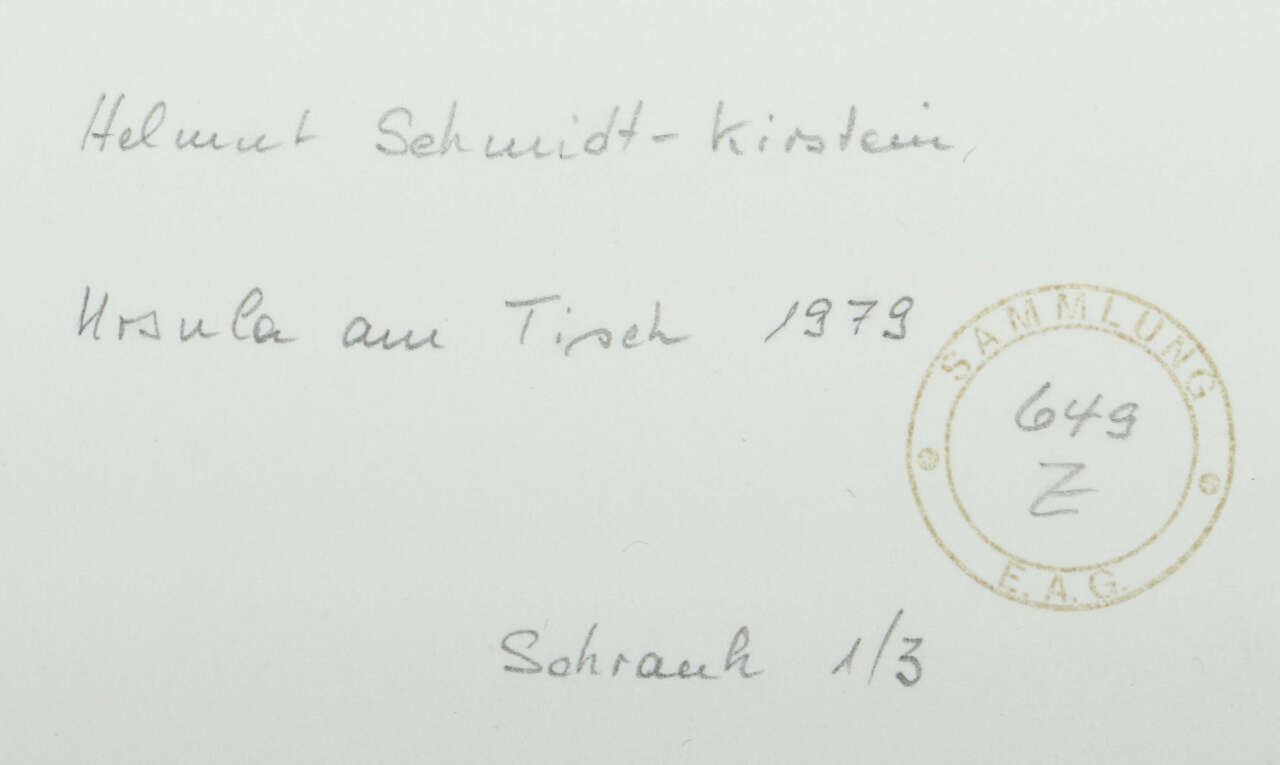 Helmut Schmidt-Kirstein,
Ursula am Tisch 1979
SAMMLUNG
649
Z
E.A.G.
Schrank 1/3